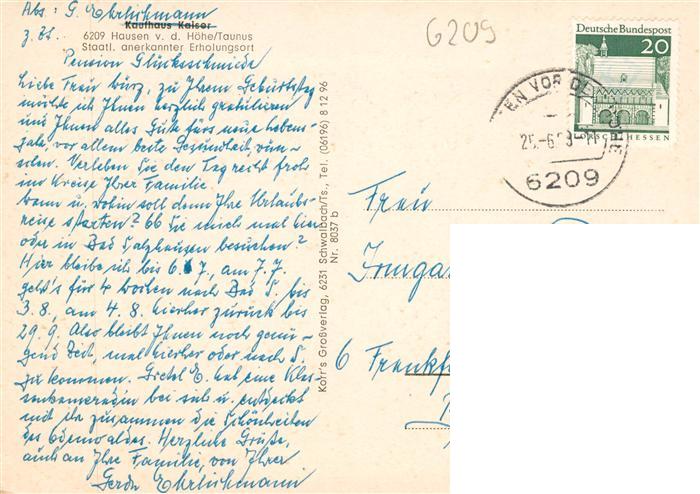 Abs: G. Ehrlichmann
Kaufhaus Kaiser
z. Zt. 6209 Hausen v. d. Höhe/Taunus
Staatl. anerkannter Erholungsort
Pension Glücksschmiede
Liebe Frau Kurz, zu Ihrem Geburtstag
möchte ich Ihnen herzlich gratulieren
und Ihnen alles Gute fürs neue Lebens-
jahr, vor allem beste Gesundheit, wün-
schen. Verleben Sie den Tag recht froh
im Kreise Ihrer Familie.
Wann u. wohin soll denn Ihre Urlaubs-
reise starten? Ob Sie mich mal hier
oder in Bad Salzhausen besuchen?
Hier bleibe ich bis 6.7., am 7.7.
geht's für 4 Wochen nach Bad S. bis
3.8., am 4.8. hierher zurück bis
29.9. Also bleibt Ihnen noch genü-
gend Zeit, mal hierher oder nach S.
zu kommen. Gretel E. hat eine Klas-
senkameradin bei sich u. entdeckt
mit ihr zusammen die Schönheiten
des Odenwaldes. Herzliche Grüße,
auch an Ihre Familie, von Ihrer
Gerda Ehrlichmann
Korr's Großverlag, 6231 Schwalbach/Ts., Tel. (06196) 8 12 96
Nr. 8037 b
6209
Deutsche Bundespost
20
LORSCH/HESSEN
EN VOR DE
25.-6
6209
Frau
Irmga
6 Frankf